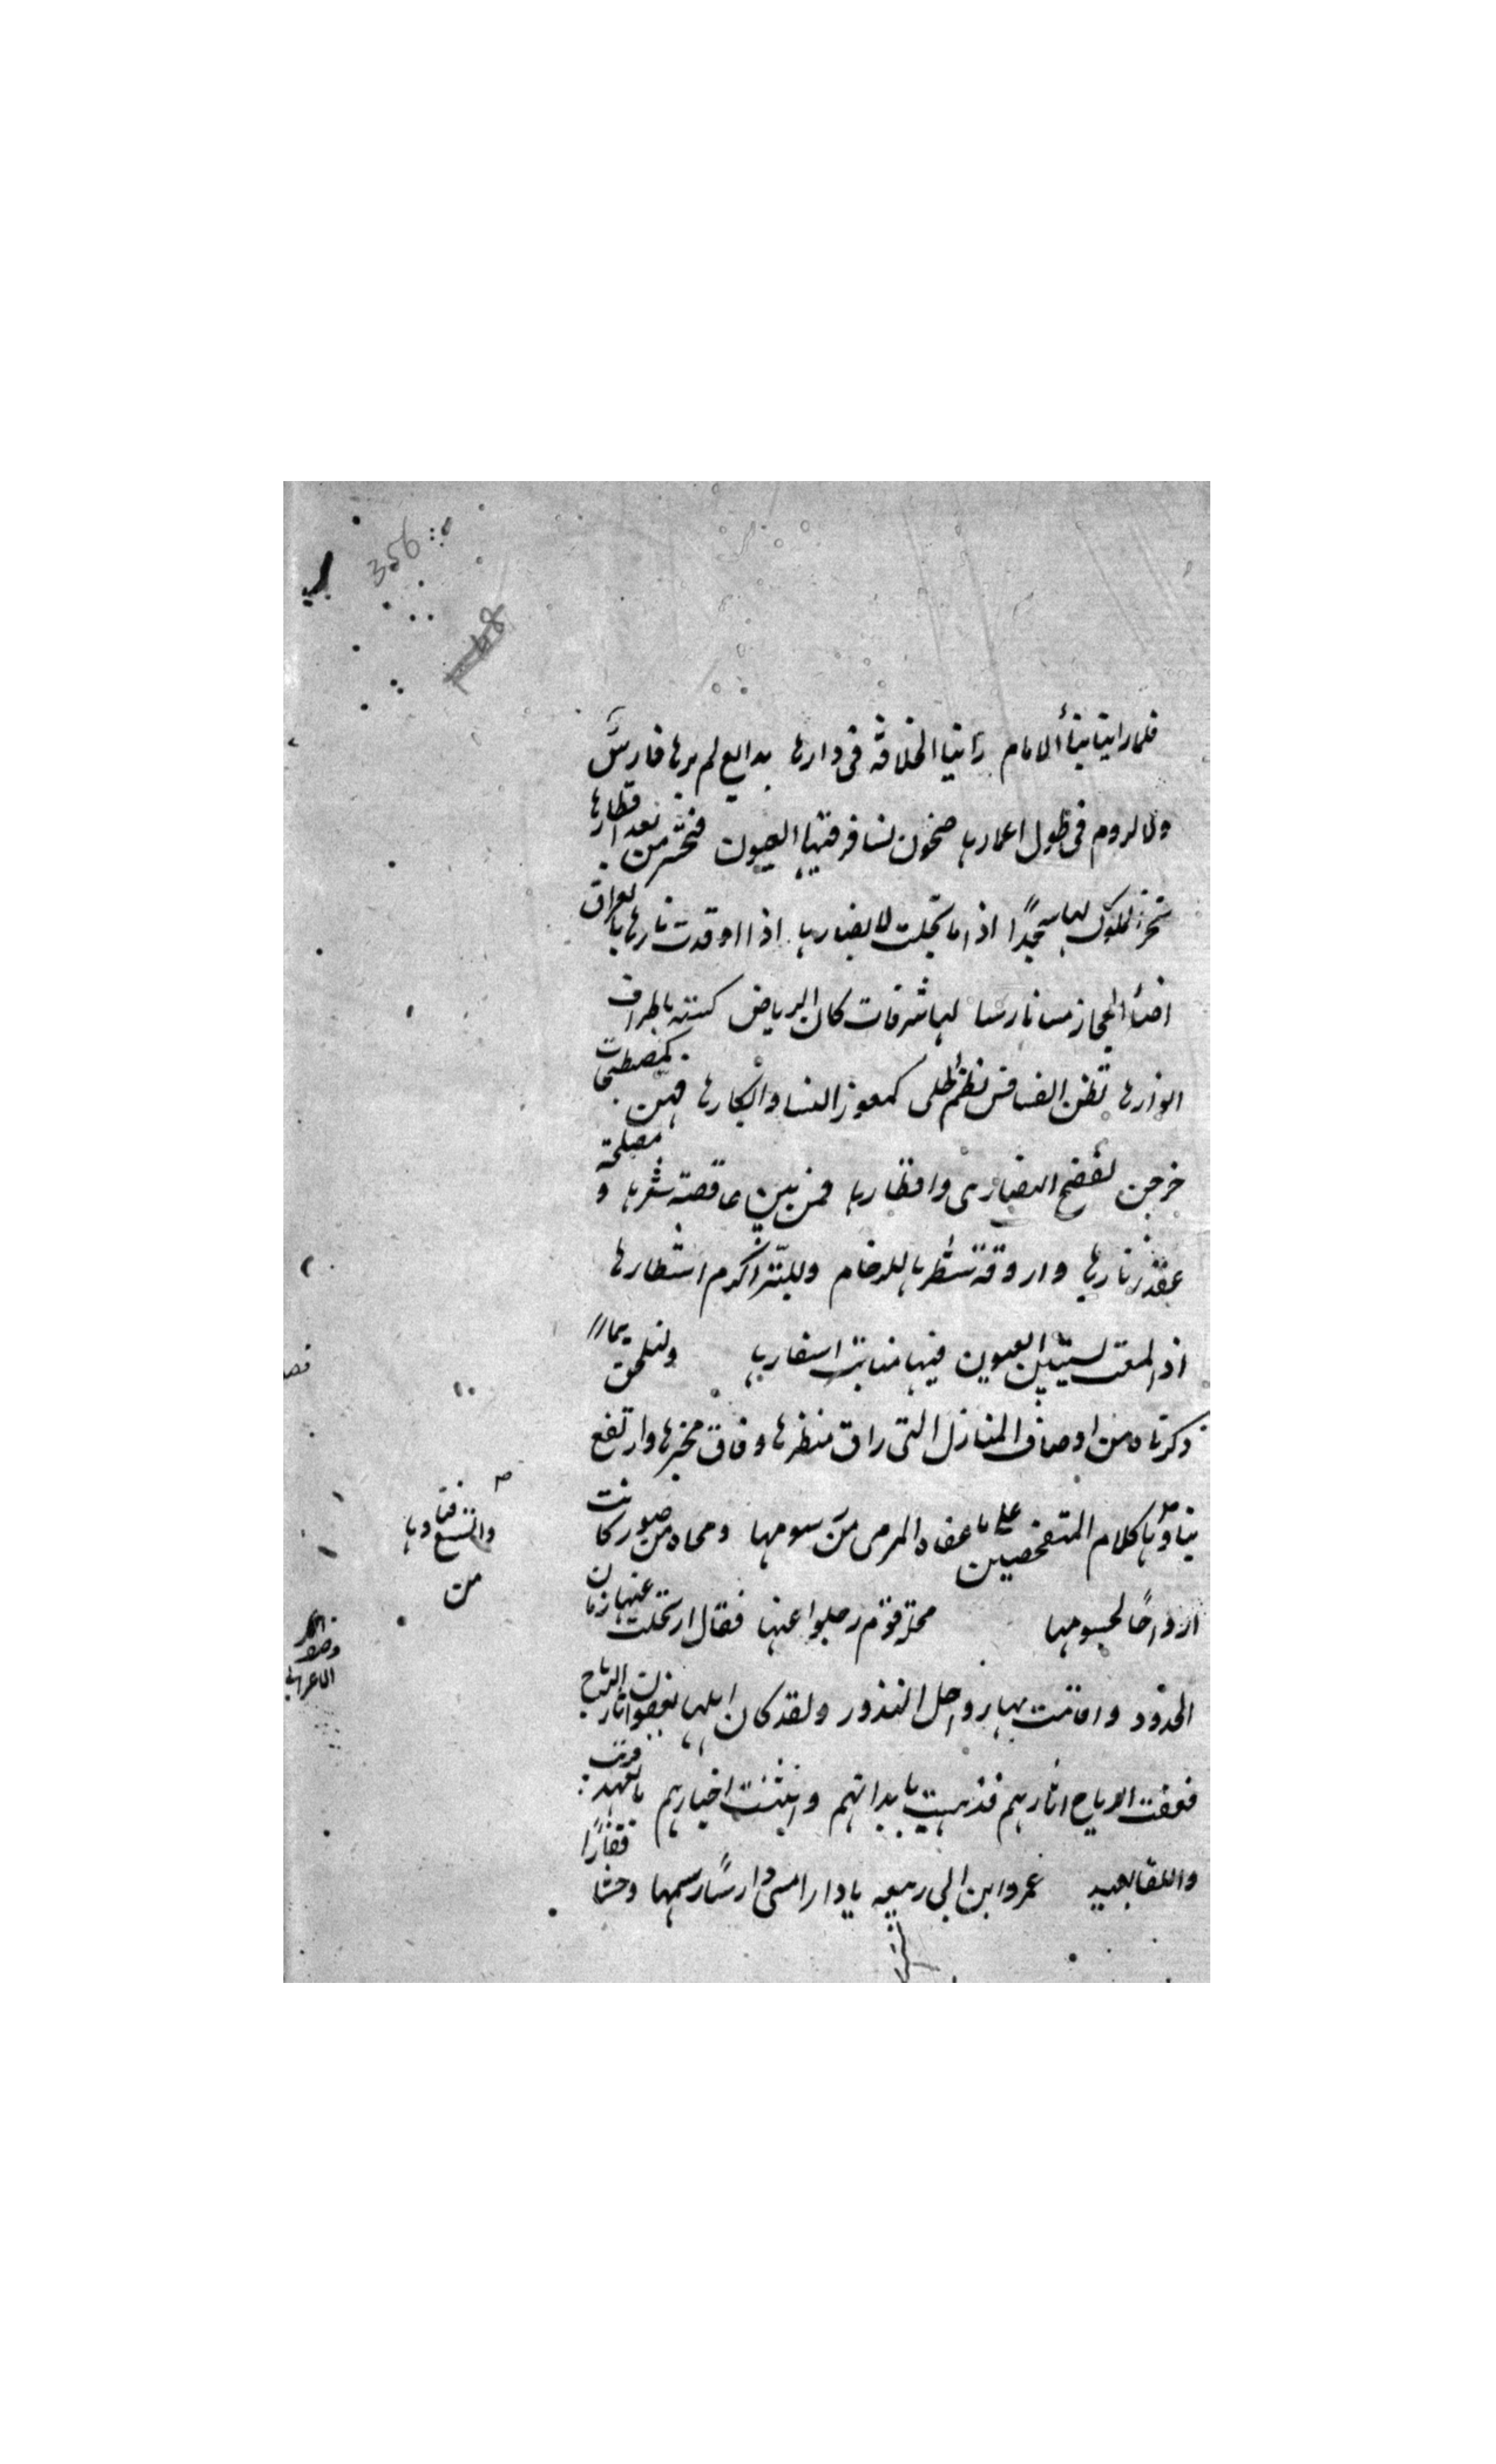 فلما راينا بنأ الامام رأينا الخلافة فى دارها بدايع لم يرها فارس
ولا لروم فى طول اعمارها صحون تسافر فيها العيون فتحسر من بعد اقطارها
تخر الملوك لها سجدًا اذا ما تجلت لابصارها اذا اوقدت نارها بالعراق
اضأ الحجاز سنا نارها لها شرفات كان الربيع كسته باطراف
انوارها نظمن الفسافس نظم الحلى كعوز النسا وابكارها فهن كمصطبحات
خرجن لفصح النصارى وافطارها فمن بين عاقصة شعرها و مصلحة
عقد زنارها واروقة شطرها للرخام وللتبر اكرم اشطارها
اذا لمعت تستبين العيون فيها منابت اسفارها ولنلحق بما
ذكرناه من اوصاف المنازل التى راق منظرها وفاق مخبرها وارتفع
بناؤها كلام المتفحصين على ما عفاه المرمى من رسومها ومحاه من صور كانت
ارواحًا لجسومها محلة قوم رحلوا عنها فقال ارتحلت عنها ربات
الخدور واقامت بها رواحل القدور ولقد كان اهلها يعفون اثار الرياح
فعفت الرياح اثارهم فذهبت بابدانهم وابقت اخبارهم فالعهد قريب
واللقا بعيد عمر وابن ابى ربيعه يا دار امسى دارسًا رسمها وحشا قفارًا
واتسع فناوها
من
356